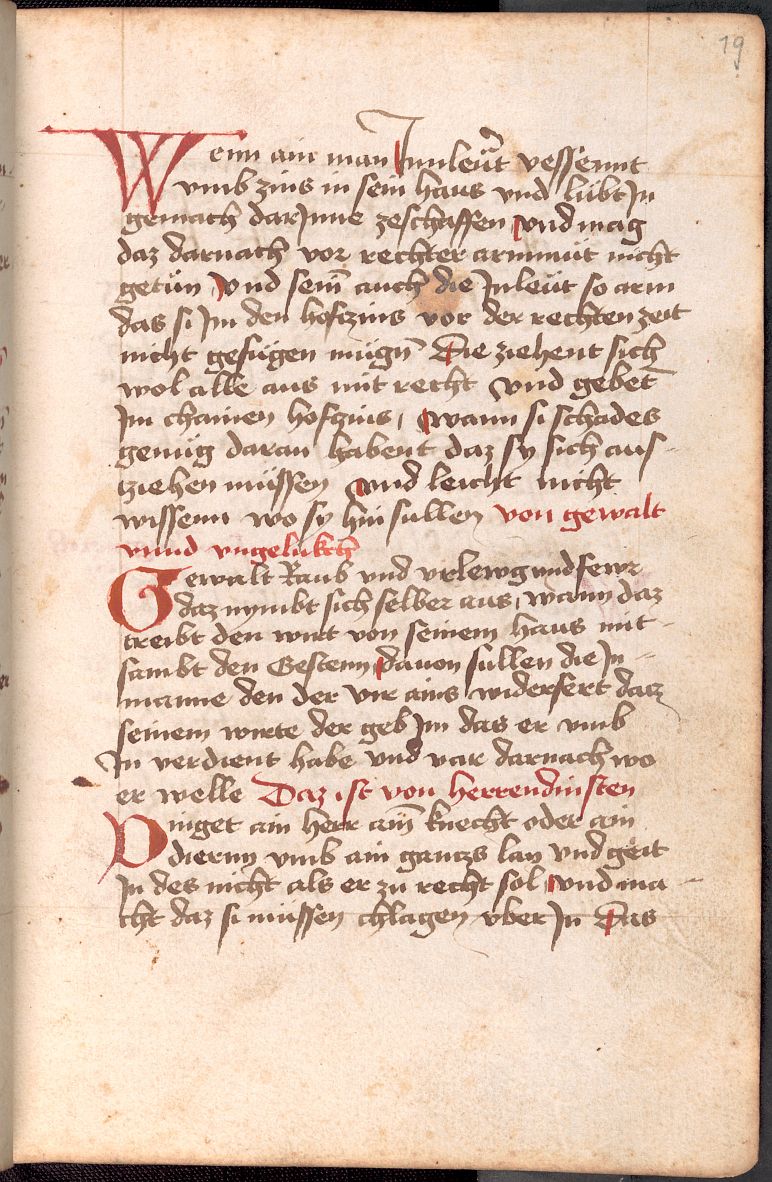 19
Wenn ain man Innleüt vessennt
vmb zins in sein haus vnd lübt In
gemach darInne zeschaffen vnd mag
daz darnach vor rechter armmüt nicht
getün vnd sein̄ auch die Inleüt so arm
das si Im den hofczins vor der rechten zeit
nicht gefügen mügn̄ Die ziehent sich
wol alle aus mit recht vnd gebent
Im chainen hofczins, wann si schades
genüg daran habent daz sy sich aus-
ziehen müssen vnd leicht nicht
wissenn wo sy hin sullen von gewalt
vnnd vngelükch
Gewalt Raub vnd vrlewg vnd fewr
daz nymbt sich selber aus, wann daz
treibt den wirt von seinem haus mit-
sambt den Gestenn dauon sullen die In-
manne den der vir ains widerfert daz
seinem wirte der geb Im das er vmb
In verdient habe vnd var darnach wo
er welle Daz ist von herrendinsten
Dinget ain herr ain̄ knecht oder ain
diernn vmb ain ganczs lan vnd geit
In des nicht als er zu recht sol vnd ma-
cht daz si müssen chlagen vber In Das